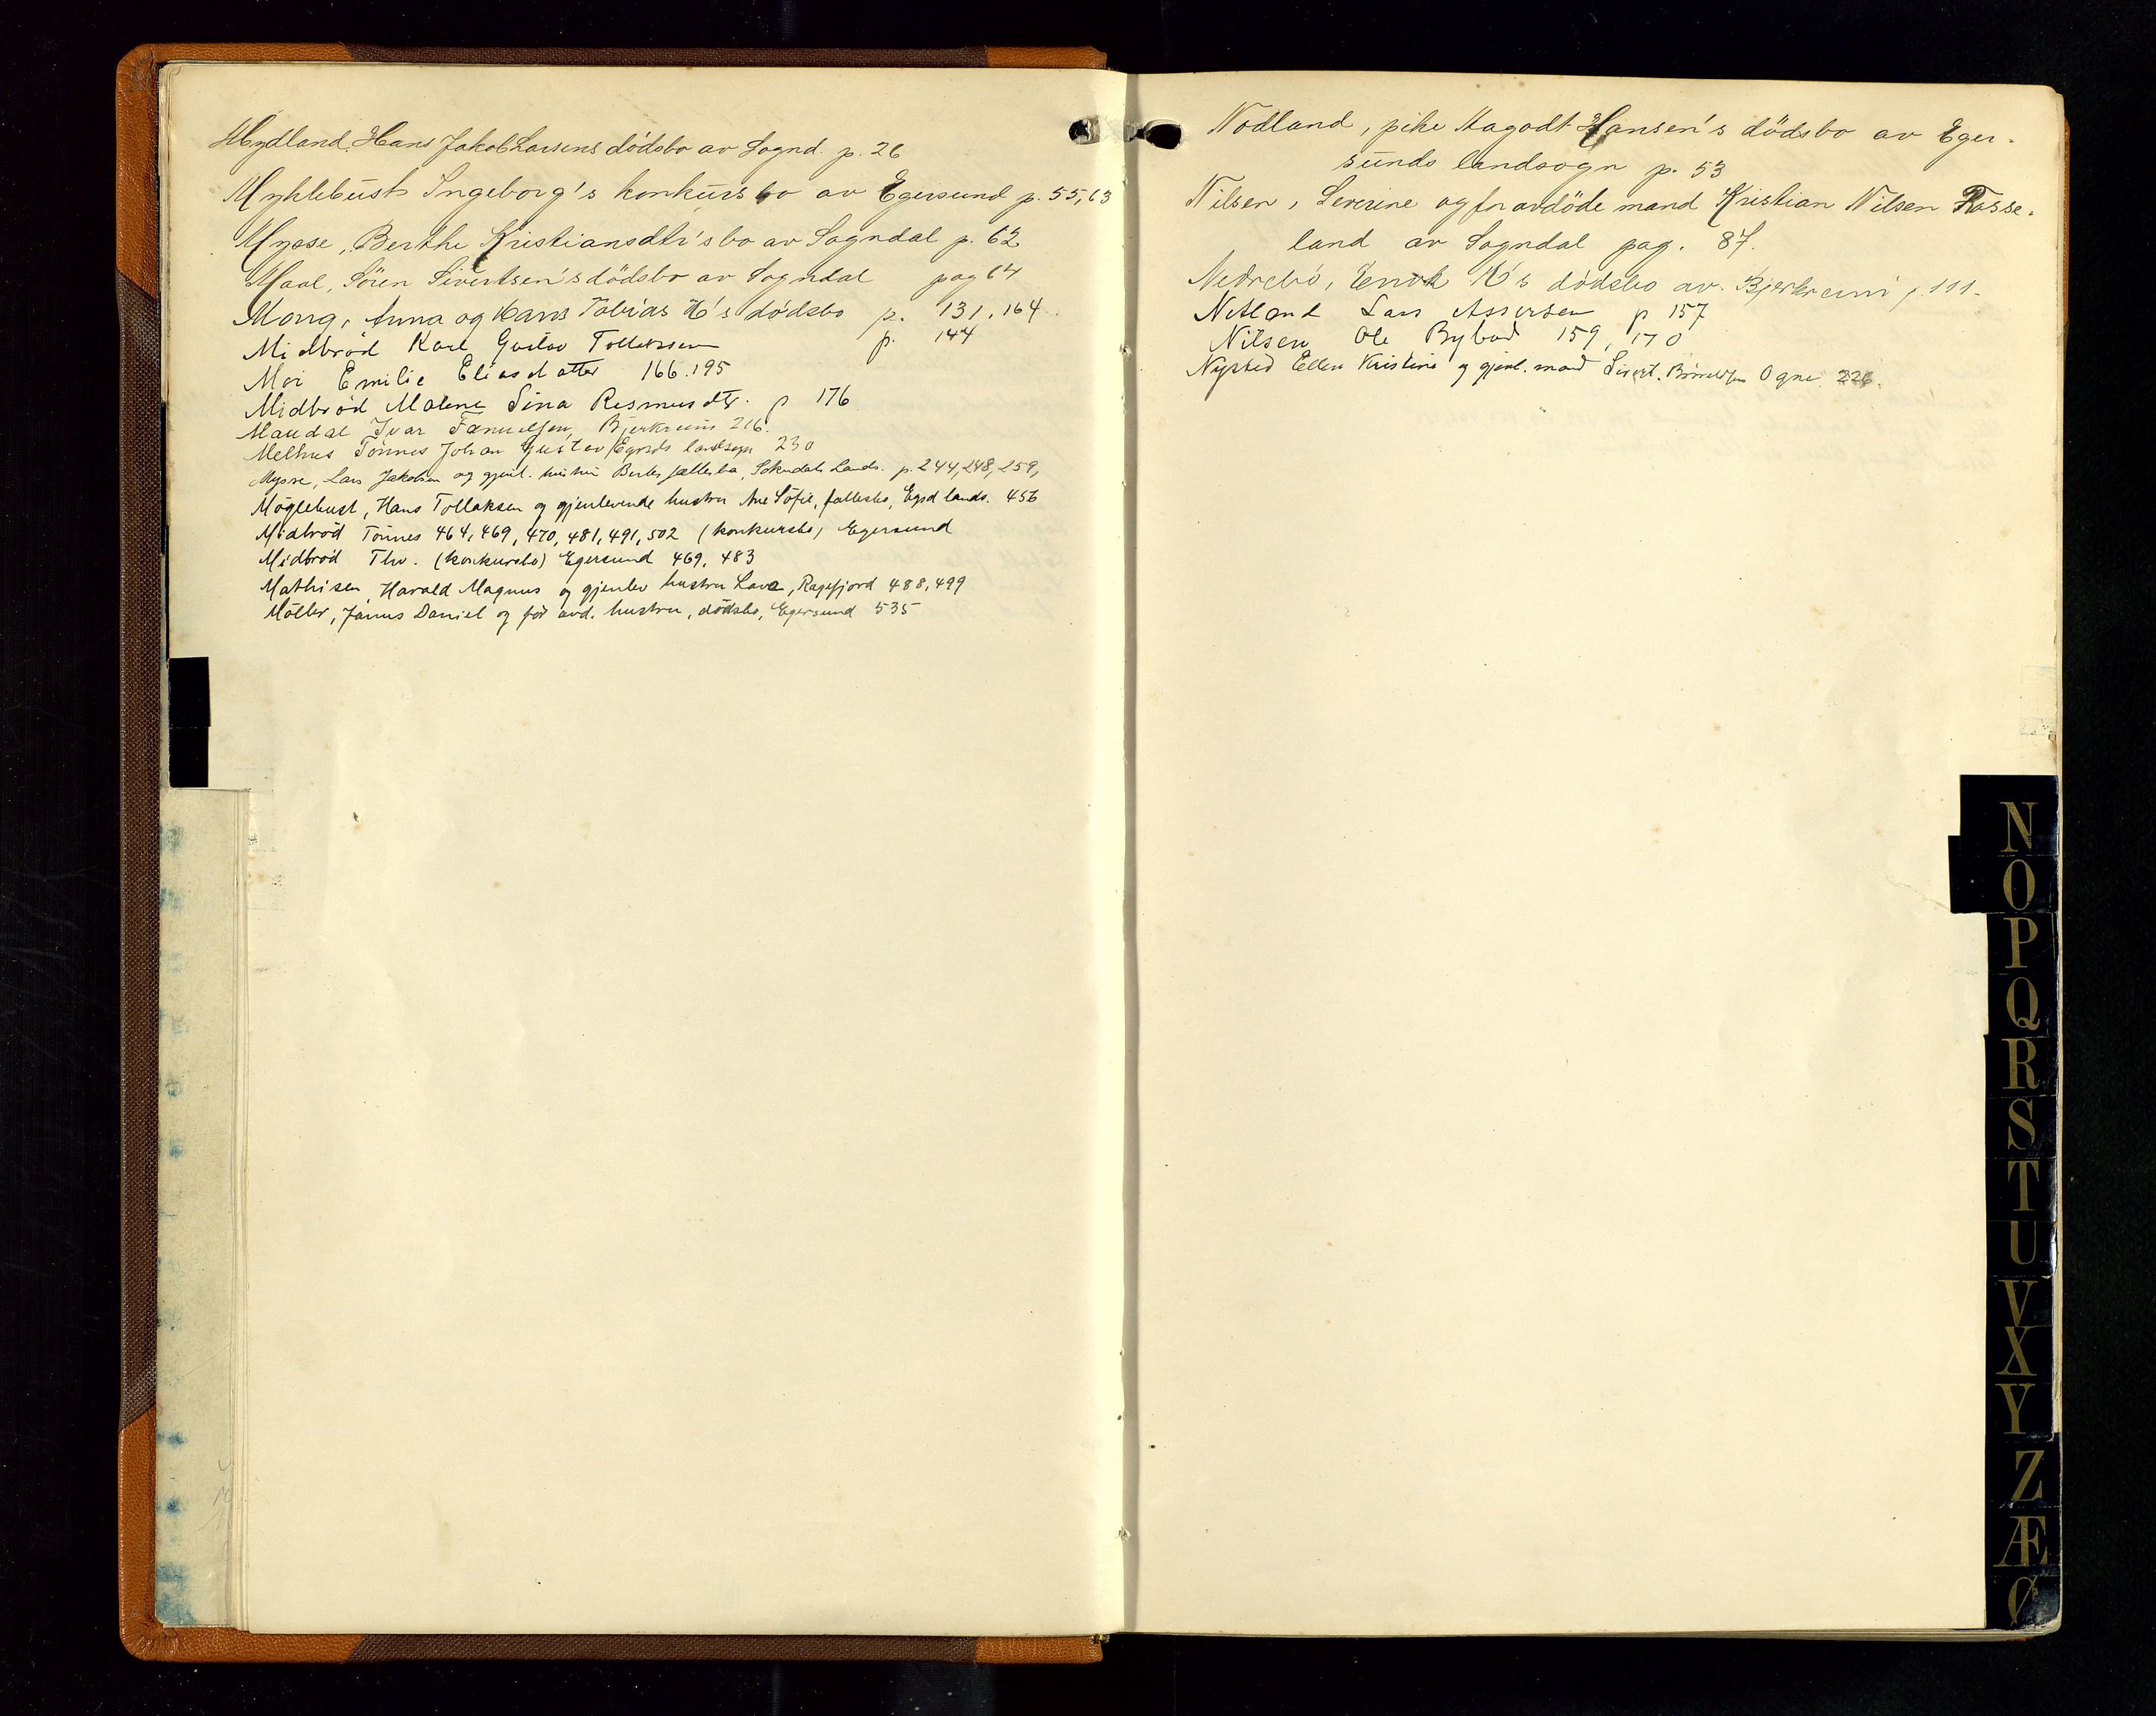 Mydland, Hans Jakob Larsens dödsbo av Sognd. p. 26
Myklebust Ingeborg's konkursbo av Egersund p. 55, 63
Mysse, Berthe Kristiansdtr's bo av Sogndal p. 62
Maal, Sören Sivertsen's dödsbo av Sogndal pag 64
Mong, Anna og Hans Tobias H's dödsbo p. 131, 164.
Midbröd Karl Gustav Tollefssen p. 144
Moi Emilie Eliasdatter 166. 195
Midbröd Malene Sina Rasmusdtr. p 176
Maudal Ivar Bjerkreim 216.
Melhus Tönnes Johan Gustav Egersds landsogn 230
Mysse, Lars Jakobsen og gjenl. hustru Bertes fællesbo, Sokndals Lands. p. 244, 248, 259,
Möglebust, Hans Tollaksen og gjenlevende hustru Ane Sofie, fællesbo, Egsd lands. 456
Midbröd Tönnes 464, 469, 470, 481, 491, 502 (konkursbo) Egersund
Midbröd Thv. (konkursbo) Egersund 469, 483
Mathisen, Harald Magnus og gjenlev hustru Lava, Ragefjord 488, 499
Möller, Janus Daniel og för avd. hustru, dödsbo, Egersund 535
Nodland, pike Aagodt Hansen's dödsbo av Eger-
sunds landsogn p. 53
Nilsen, Severine og for avdöde mand Kristian Nilsen Rosse-
land av Sogndal pag. 87.
Nedrebö, Enok K's dödsbo av Bjerkreim p. 111-
Netland Lars Assersen p 157
Nilsen Ole Bybød 159, 170
Nysted Ellen Kristine og gjenl. mand Sivert Ogne 226.
N
O
P
Q
R
S
T
U
V
X
Y
Z
Æ
Ø